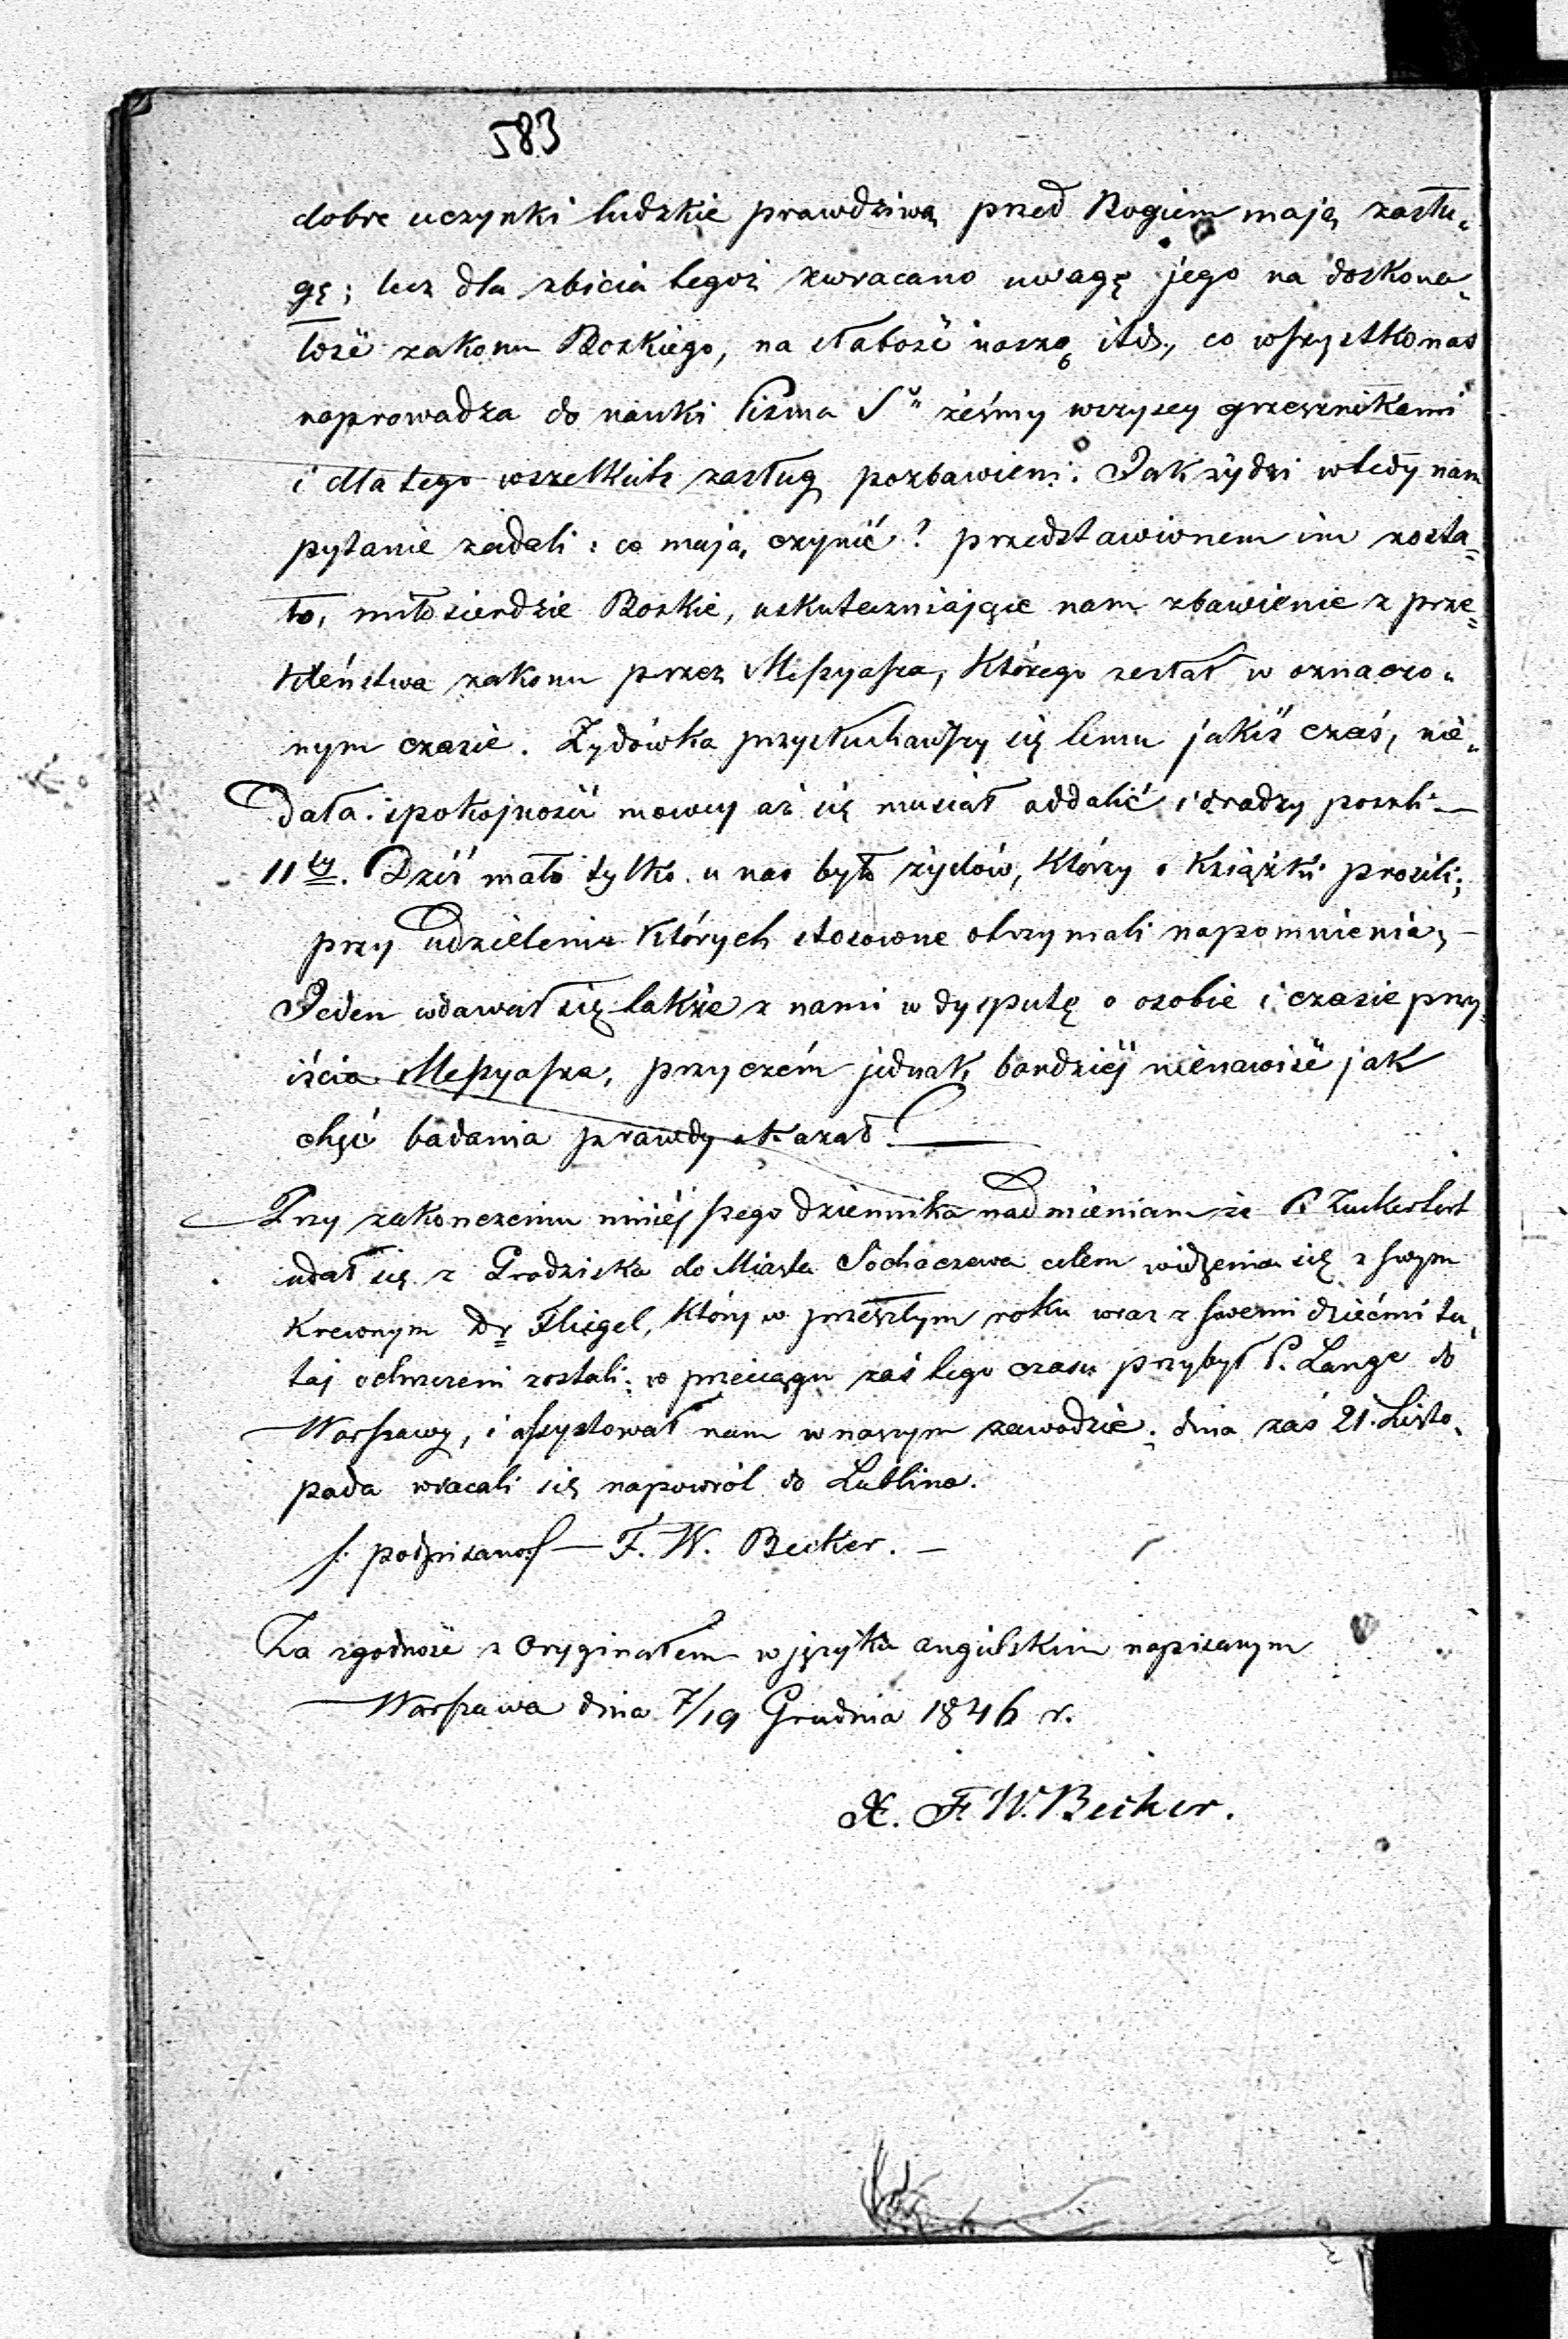 583
dobre uczynki ludzkie prawdziwą przed Bogiem mają zasłu„
gę; lecz dla zbicia tegoż zwracano uwagę jego na doskona„
łość zakonu Bozkiego, na słabość naszą itd., co wszystko nas
naprowadza do nauki Pisma Sº żeśmy wszyscy grzesznikami
i dla tego wszelkich zasług pozbawieni. Jak żydzi wtedy nam
pytanie zadali: co mają czynić? przedstawionem im zosta=
ło, miłosierdzie Bozkie, uskuteczniające nam zbawienie z prze=
kleństwa zakonu przez Messyasza, którego zesłał w oznaczo„
nym czasie. Żydówka przysłuchawszy się temu jakiś czas, nie„
dała spokojności mowcy aż się musiał oddalić i drudzy poszli —
11ty. Dziś mało tylko u nas było żydów, którzy o książki prosili;
przy udzieleniu których stosowne otrzymali napomnienia; —
Jeden wdawał się także z nami w dysputę o osobie i czasie przy„
iścia Messyasza, przyczém jednak bardziéj nienawiść jak
chęć badania prawdy okazał. —
Przy zakonczeniu niniéjszego dziennika nadmieniam że P. Zuckertort
udał się z Grodziska do Miasta Sochaczewa celem widzenia się z swym
krewnym Dr Fliegel, który w przeszłym roku wraz z swemi dziećmi tu„
taj ochrzceni zostali; w przeciągu zaś tego czasu przybył P. Lange do
Warszawy, i assystował nam w naszym zawodzie; dnia zaś 21. Listo„
pada wracali się napowrót do Lublina.
/: podpisano :/ — F. W. Becker. —
Za zgodność z Oryginałem w języku angielskim napisanym
Warszawa dnia 7/19 Grudnia 1846 r.
X. F. W. Becker.